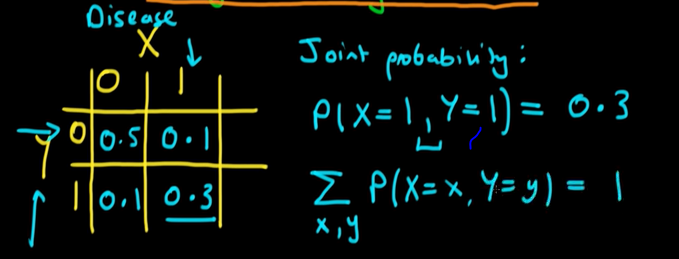 Disease
X
0 1
Y 0 0.5 0.1
1 0.1 0.3
Joint probability:
P(X=1, Y=1) = 0.3
∑ P(X=x, Y=y) = 1
x,y